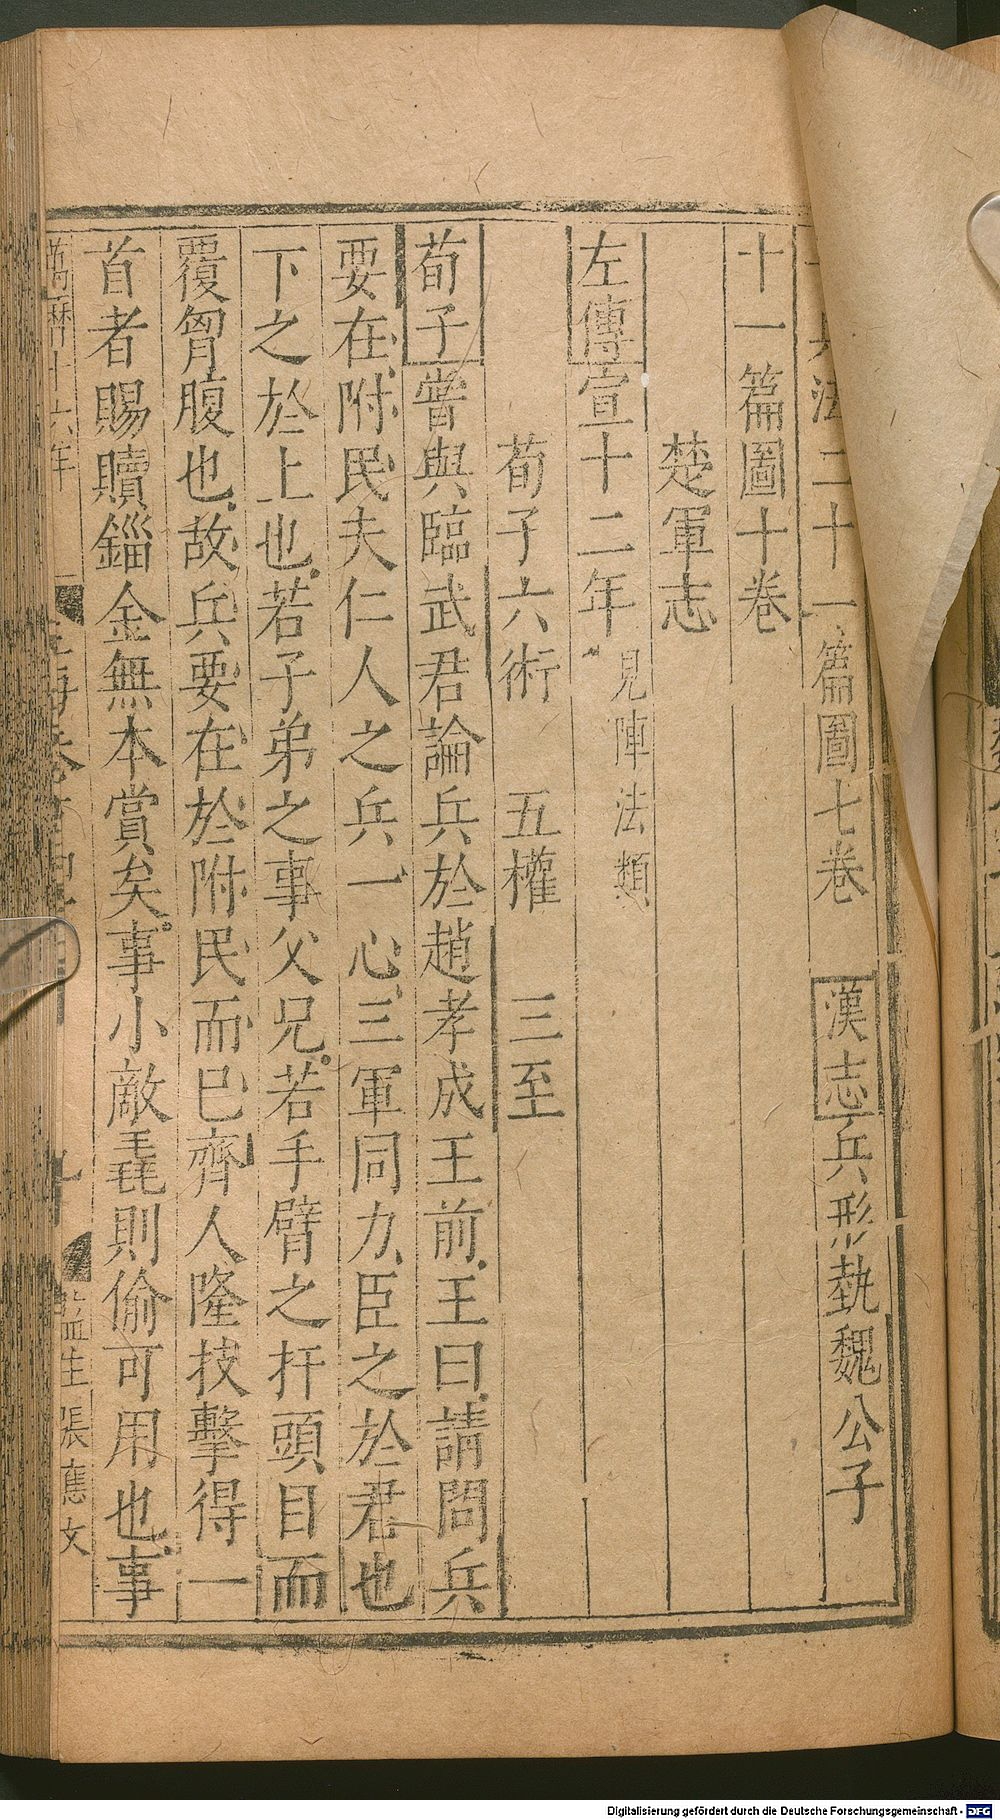 兵法二十一篇圖七卷 漢志兵形埶魏公子
十一篇圖十卷
楚軍志
左傳宣十二年 見陣法類
荀子六術 五權 三至
荀子嘗與臨武君論兵於趙孝成王前王曰請問兵
要在附民夫仁人之兵一心三軍同力臣之於君也
下之於上也若子弟之事父兄若手臂之扞頭目而
覆胷腹也故兵要在於附民而已齊人隆技擊得一
首者賜贖錙金無本賞矣事小敵毳則偷可用也事
萬曆十六年 玉海卷 九 監生張應文
Digitalisierung gefördert durch die Deutsche Forschungsgemeinschaft - DFG